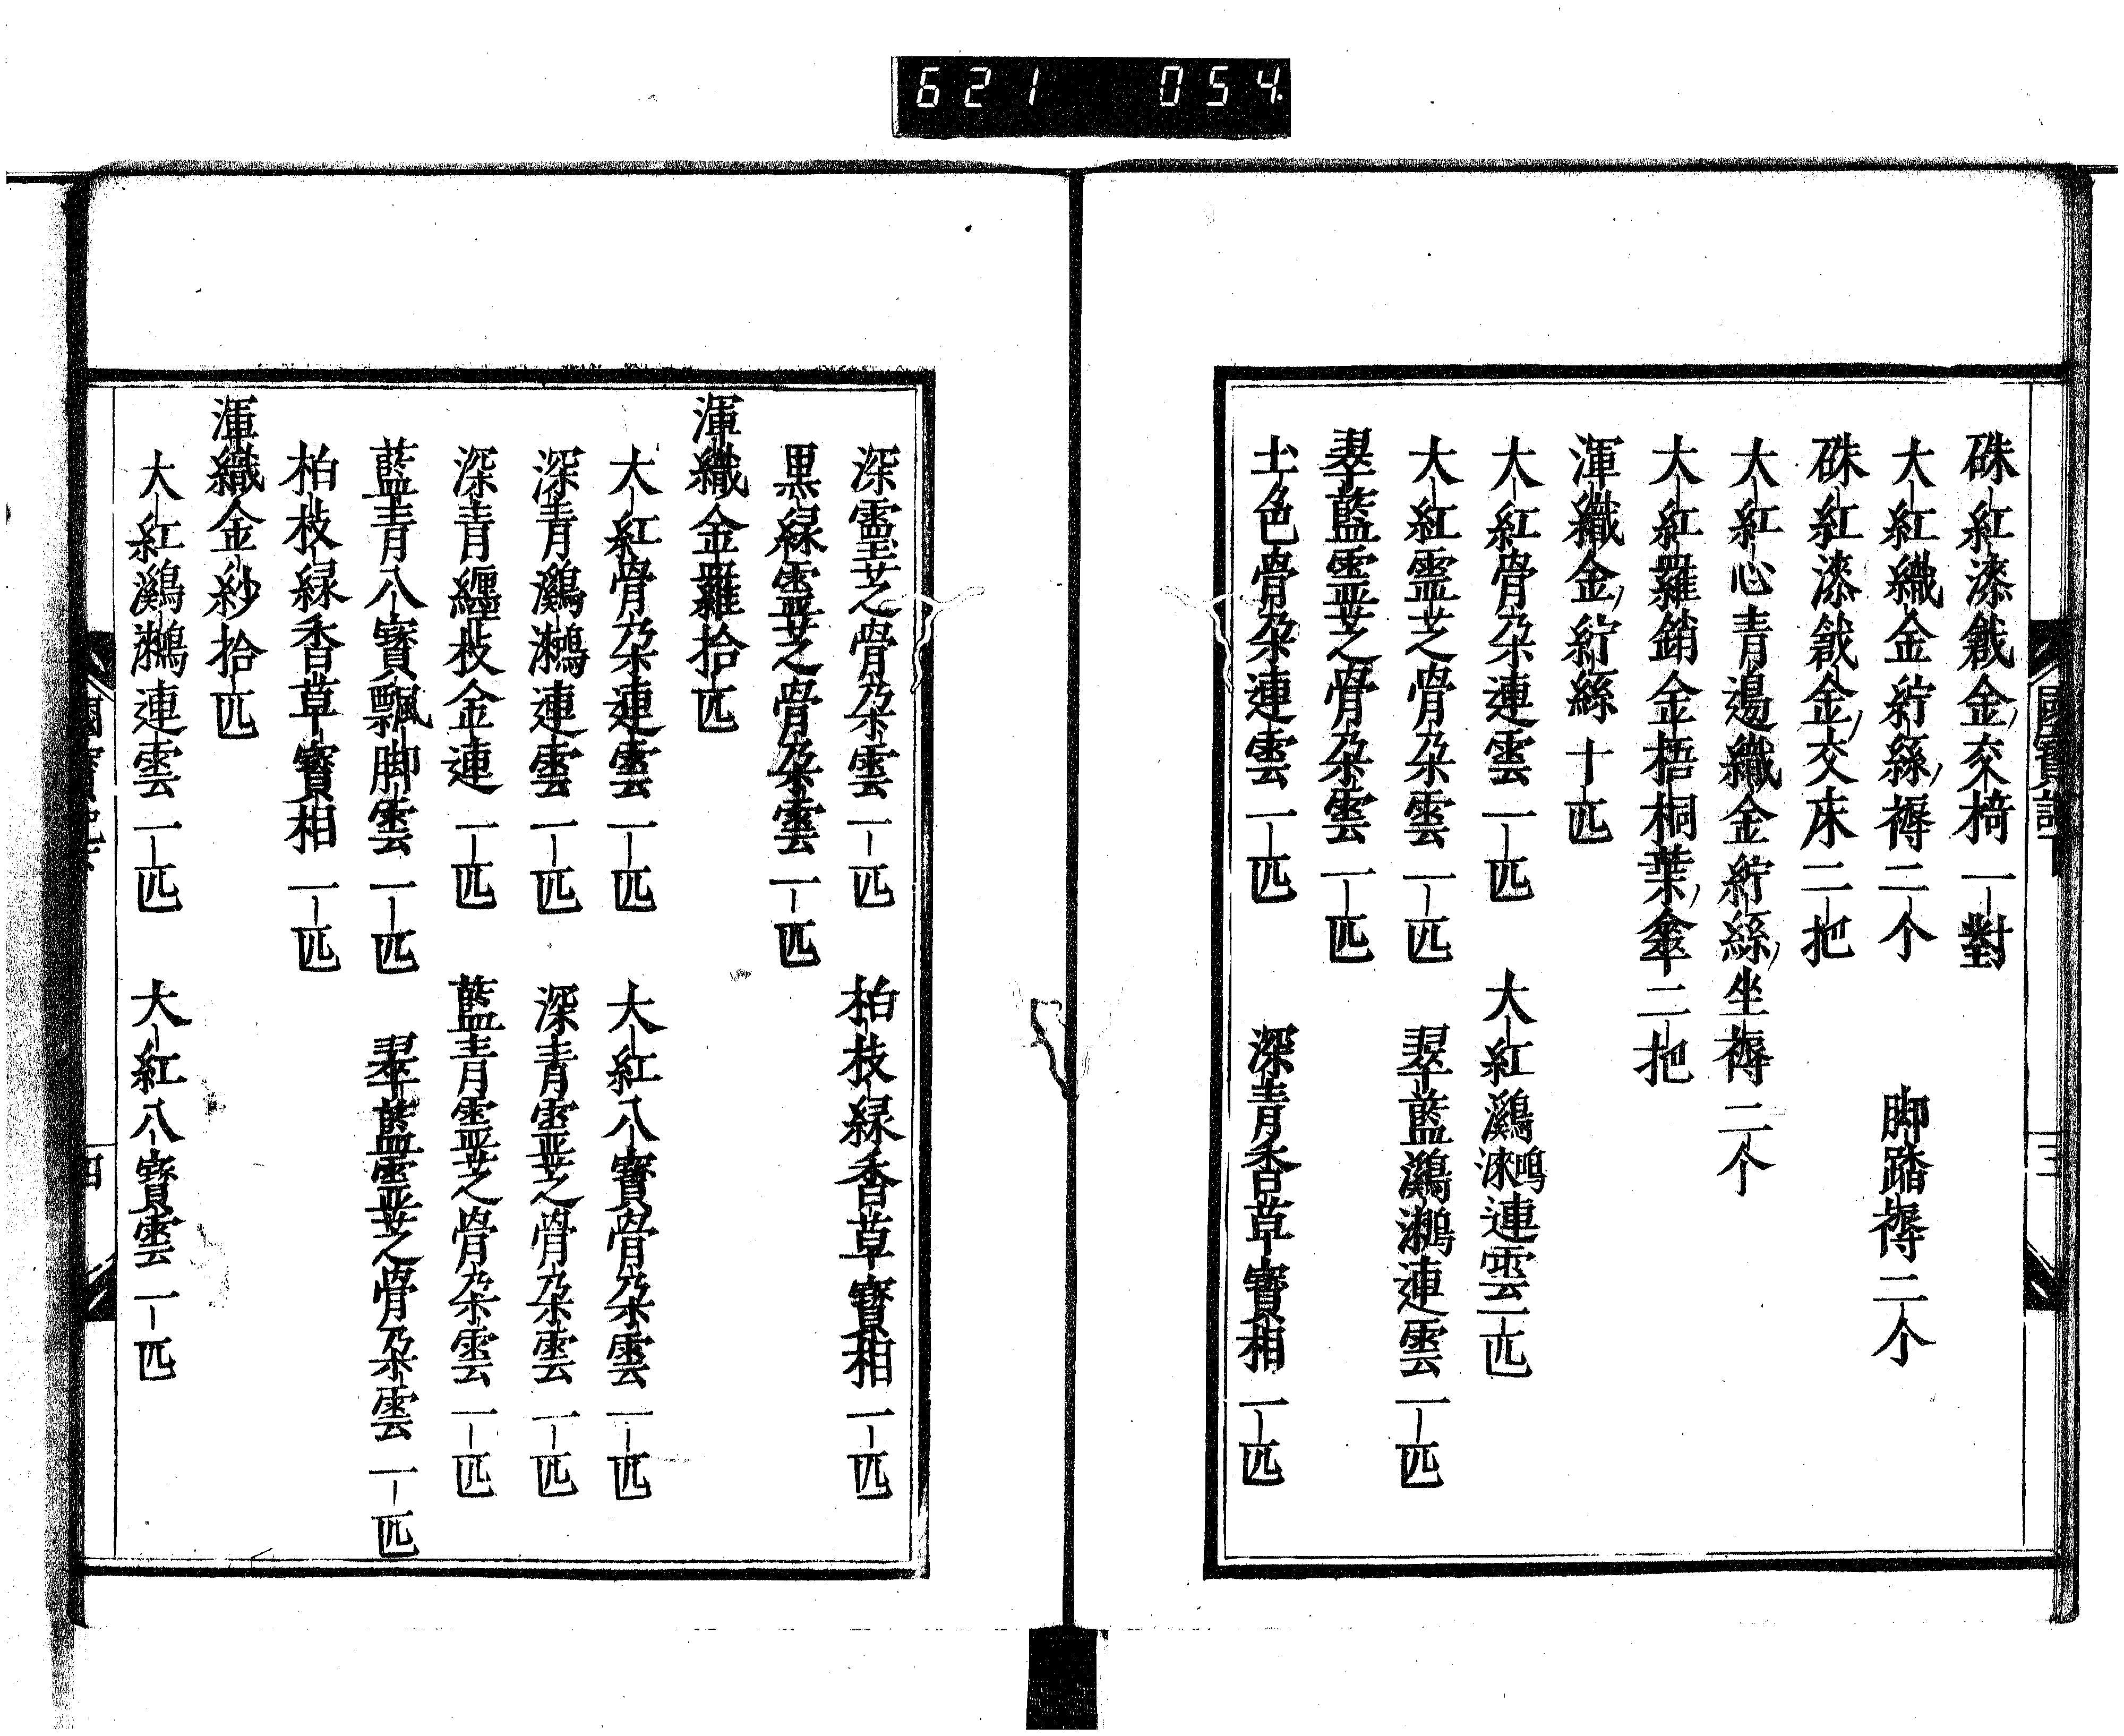 621 054
硃紅漆戧金交椅一對
大紅織金紵絲褥二个 脚踏褥二个
硃紅漆戧金交床二把
大紅心青邊織金紵絲坐褥二个
大紅羅銷金梧桐葉傘二把
渾織金紵絲十匹
大紅骨朶連雲一匹 大紅鸂鶒連雲一匹
大紅靈芝骨朶雲一匹 翠藍鸂鶒連雲一匹
翠藍靈芝骨朶雲一匹
土色骨朶連雲一匹 深青香草寶相一匹
深靈芝骨朶雲一匹 柏枝緑香草寶相一匹
黒緑靈芝骨朶雲一匹
渾織金羅拾匹
大紅骨朶連雲一匹 大紅八寶骨朶雲一匹
深青鸂鶒連雲一匹 深青靈芝骨朶雲一匹
深青纏枝金連一匹 藍青靈芝骨朶雲一匹
藍青八寶飄脚雲一匹 翠藍靈芝骨朶雲一匹
柏枝緑香草寶相一匹
渾織金紗拾匹
大紅鸂鶒連雲一匹 大紅八寶雲一匹